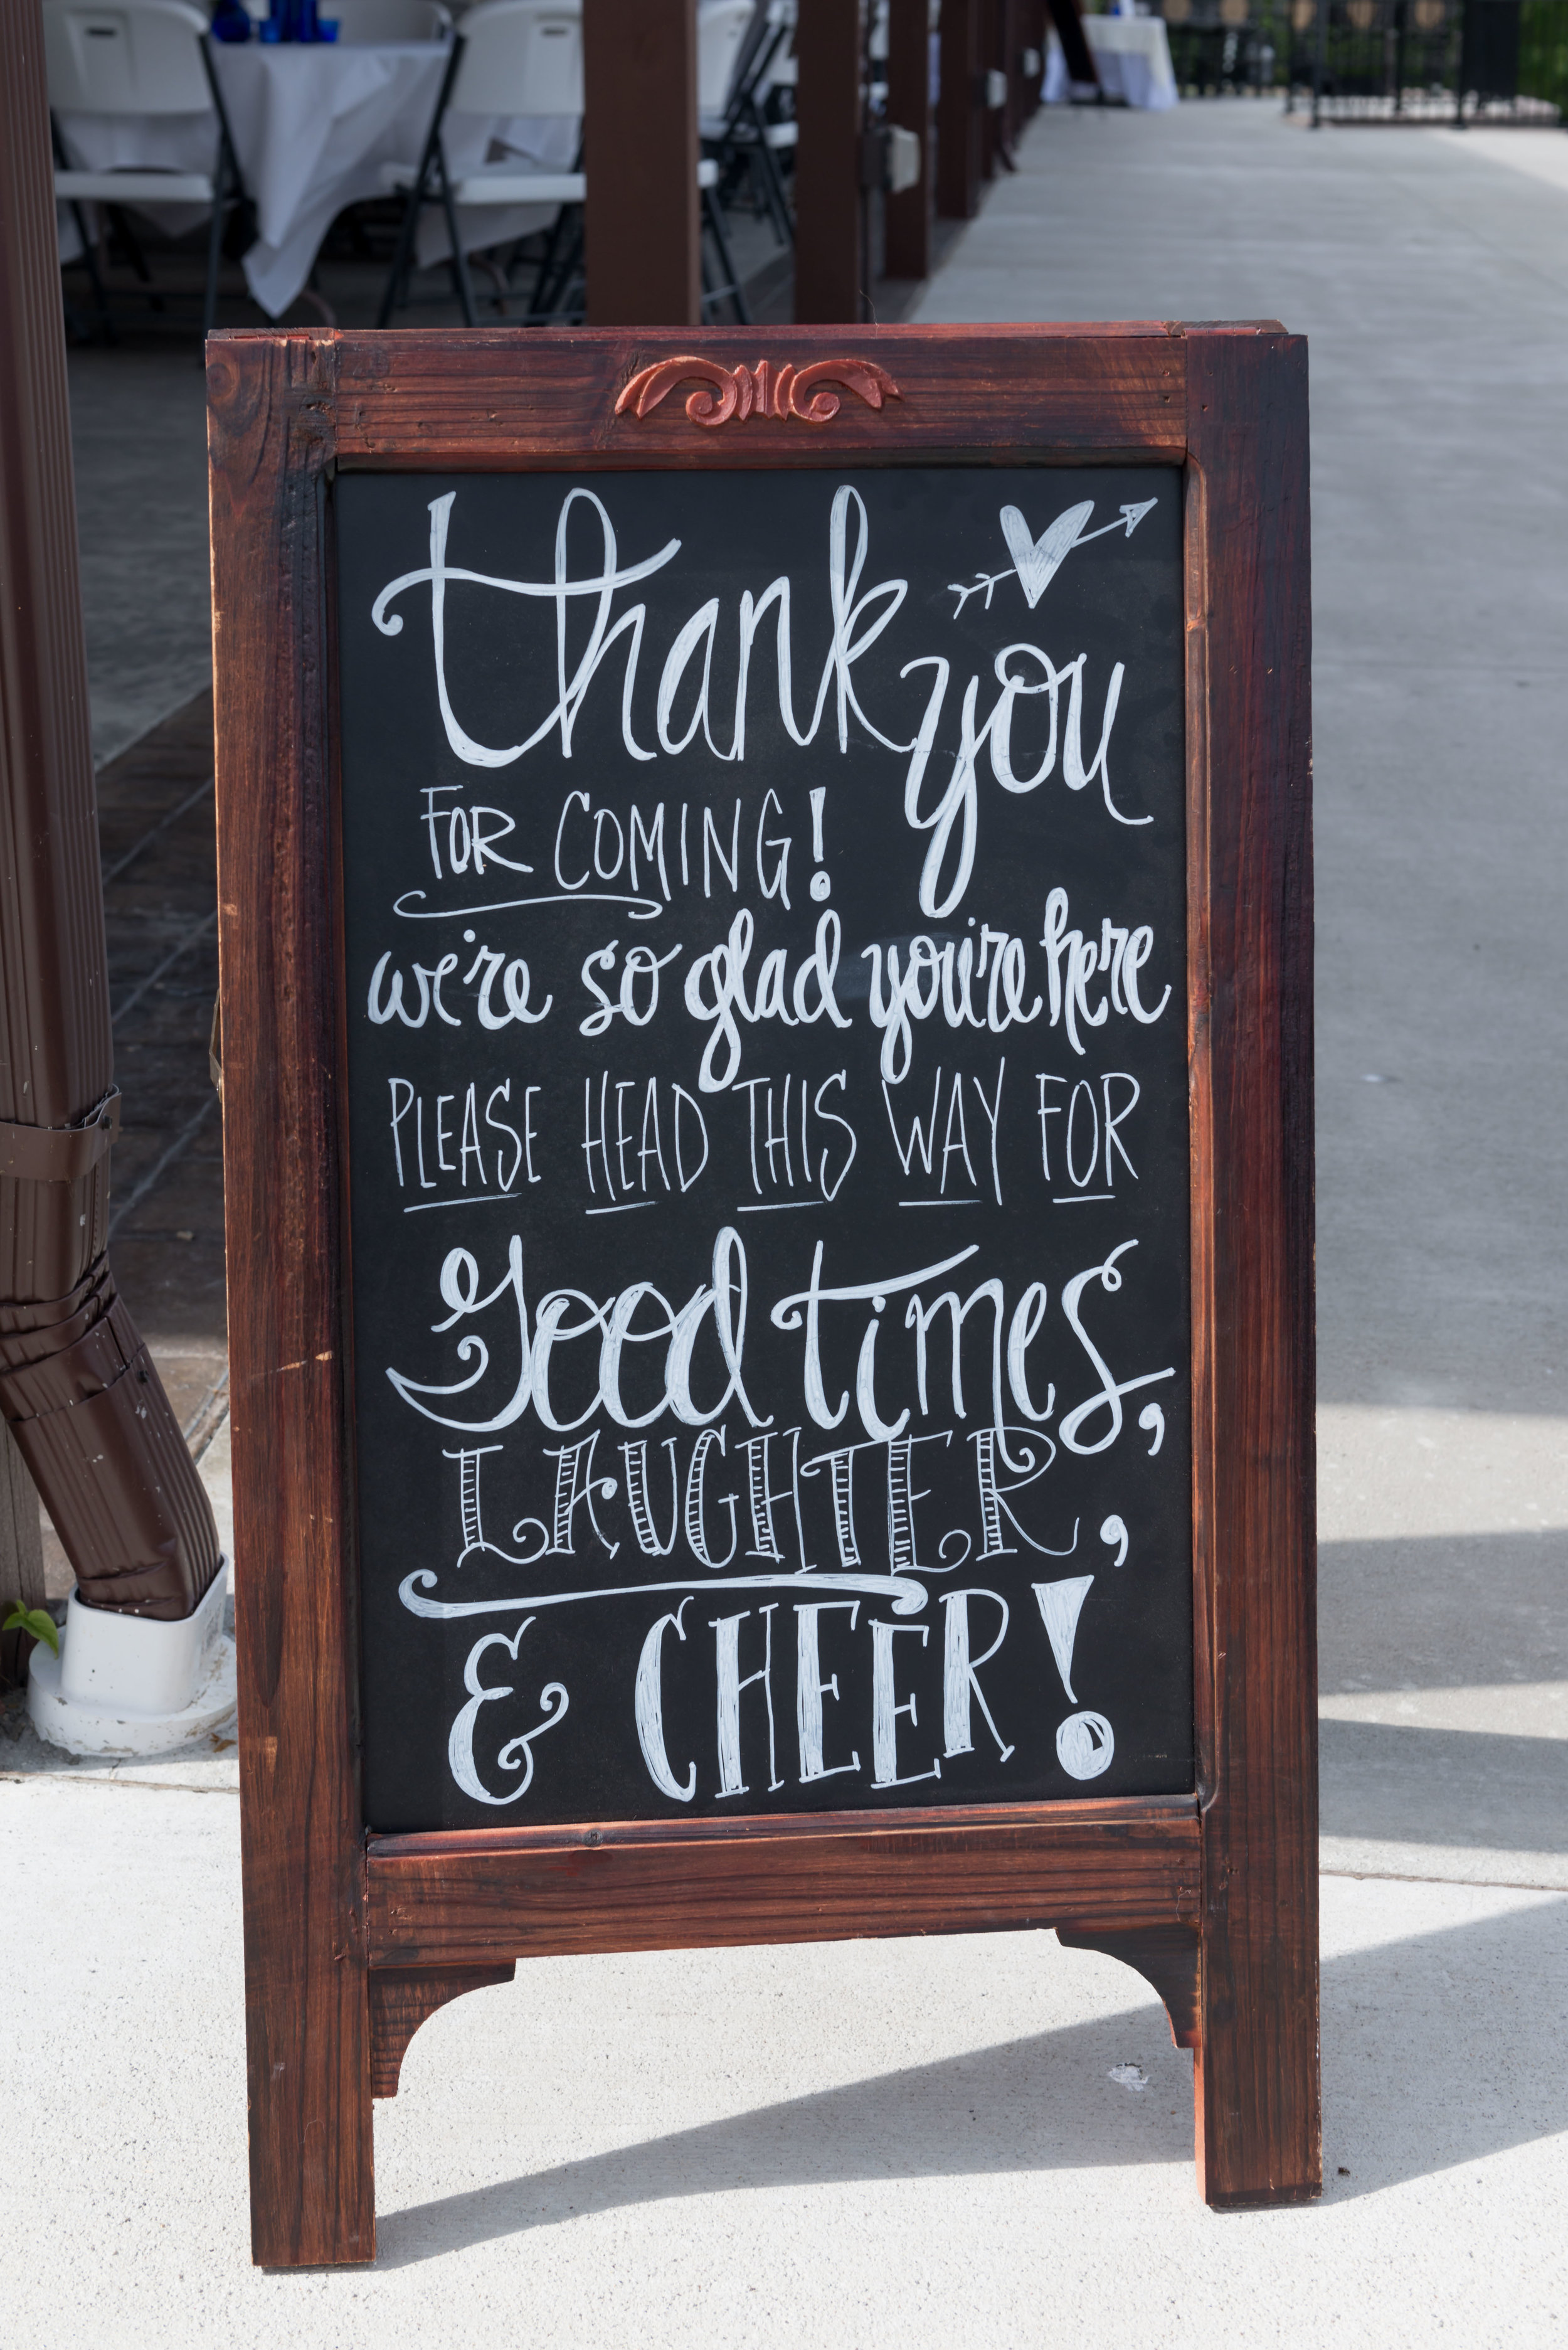 thank you
FOR COMING!
we're so glad you're here
PLEASE HEAD THIS WAY FOR
Good times,
LAUGHTER,
& CHEER!